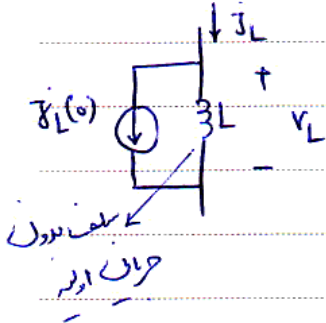 j_L
+
j_L(0)
L
V_L
−
سلف بدون
جریان اولیه